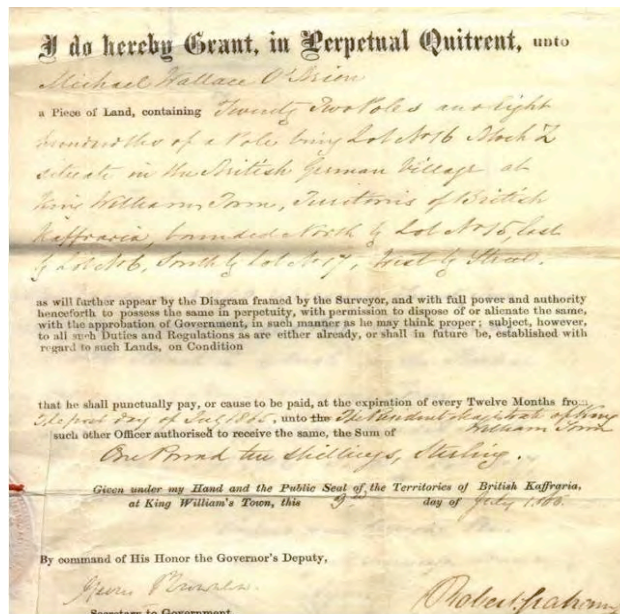 I do hereby Grant, in Perpetual Quitrent, unto
Michael Wallace O'Brien
a Piece of Land, containing Twenty Two Poles and Eight
hundredths of a Pole being Lot No 16 Block Z
situate in the British German Village at
King Williams Town, Territories of British
Kaffraria, bounded North by Lot No 15, East
by Lot No 6, South by Lot No 17, West by Street.
as will further appear by the Diagram framed by the Surveyor, and with full power and authority
henceforth to possess the same in perpetuity, with permission to dispose of or alienate the same,
with the approbation of Government, in such manner as he may think proper; subject, however,
to all such Duties and Regulations as are either already, or shall in future be, established with
regard to such Lands, on Condition
that he shall punctually pay, or cause to be paid, at the expiration of every Twelve Months from
The first day of July 1865, unto the The Resident Magistrate of King
William Town
such other Officer authorised to receive the same, the Sum of
One Pound ten shillings, Sterling.
Given under my Hand and the Public Seal of the Territories of British Kaffraria,
at King William's Town, this day of July
By command of His Honor the Governor's Deputy,
Robert Graham
Secretary to Government